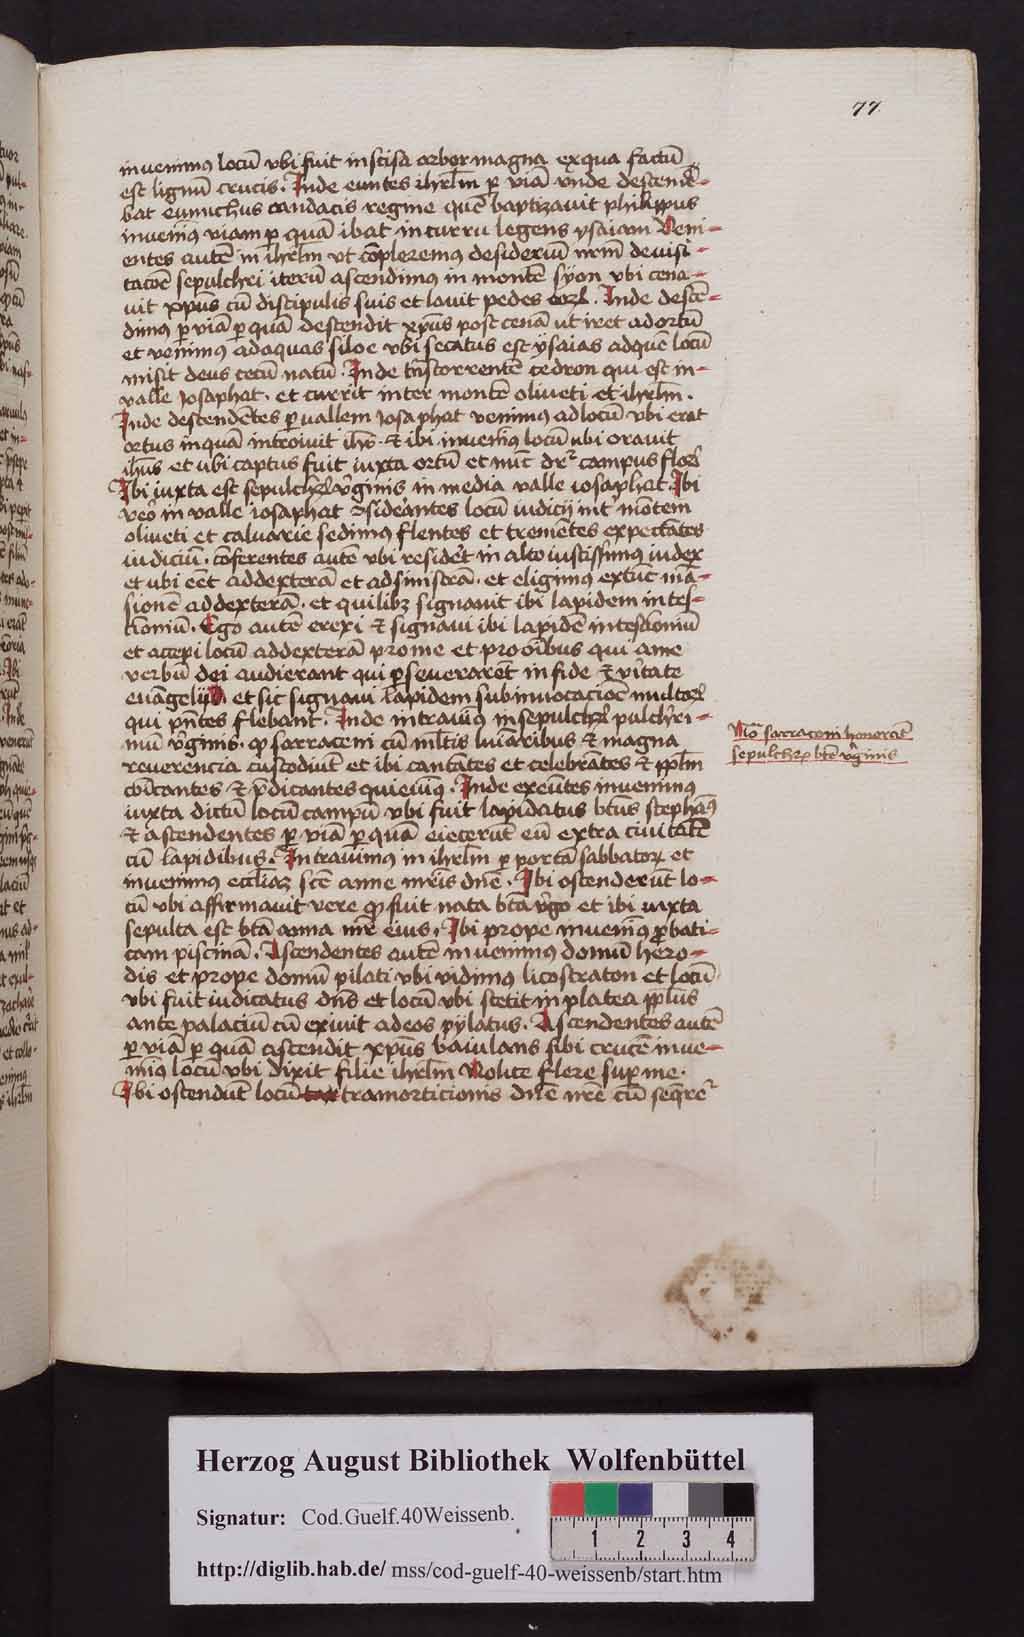 77
inuenimus locū vbi fuit inscisa arbor magna ex qua factū
est lignū crucis. Inde euntes ihrlm̄ ꝑ viā vnde descende-
bat eunuchus candacis regine quē baptizauit philippus
inuenimꝰ viam ꝑ quā ibat in curru legens ysaiam Veni-
entes autē in ihrlm̄ vt cōpleremꝰ desideriū nrm̄ de visi-
tacōe sepulchri iterū ascendimꝰ in montē syon vbi cena-
uit xp̄us cū discipulis suis et lauit pedes eorꝝ. Inde descē-
dimꝰ ꝑ viā ꝑ quā descendit xp̄us post cenā ut iret ad ortū
et venimꝰ ad aquas siloe vbi secatus est ysaias ad que locū
misit deus cecū natū. Inde tn̄s torrentē cedron qui est in
valle Iosaphat. et currit inter montē oliueti et ihrlm̄.
Inde descendētes ꝑ vallem Iosaphat venimꝰ ad locū vbi erat
ortus in quā introiuit ihc̄. & ibi inuenimꝰ locū ubi orauit
ih̄us et ubi captus fuit iuxta ortū et nūc dr̄ campus florꝝ
Ibi iuxta est sepulchrꝝ v̄ginis in media valle iosaphat. Ibi
vero in valle iosaphat ɔsideantes locū iudicij int̄ mōtem
oliueti et caluarie sedimꝰ flentes et trementes expectātes
iudiciū. cōferentes autē vbi residēt in alto iustissimus iudex
et ubi eēt ad dexterā et ad sinistrā. et eligimꝰ ex tūc mā-
sionē ad dexterā. et quilibꝫ signauit ibi lapidem in tes-
tioniū. Ego autē erexi & signaui ibi lapidē in testioniū
et accepi locū ad dexterā pro me et pro oībus qui a me
verbū dei audierant qui ꝑseuerarēt in fide & v̄itate
euāgelij. et sic signaui lapidem sub inuocacioē multorꝝ
qui pn̄tes flebant. Inde intrauimꝰ in sepulchrꝝ pulcherri-
mū v̄ginis. qꝫ sarraceni cū ml̄tis luīaribus & magna
reuerencia custodiūt et ibi cantātes et celebrātes & ppl̄m
cōicantes & p̄dicantes quieuimꝰ. Inde exeūtes inuenimꝰ
iuxta dictū locū campū vbi fuit lapidatus btūs stephanꝰ
& ascendentes ꝑ viā ꝑ quā eiecerūt eū extra ciuitatē
cū lapidibus. Intrauimus in ihrlm̄ ꝑ portā sabbatoꝝ et
inuenimꝰ eccl̄iaꝫ sct̄e anne mr̄is dn̄e. Ibi ostenderūt lo-
cū vbi affirmauit vere qꝫ fuit nata btā v̄go et ibi iuxta
sepulta est btā anna mr̄ eius. Ibi prope inuenimꝰ ꝓbati-
cam piscinā. Ascendentes autē inuenimus domū hero-
dis et prope domū pilati vbi vidimꝰ licostraton et locū
vbi fuit iudicatus dn̄s et locū vbi stetit in platea ppl̄us
ante palaciū cū exiuit ad eos pylatus. Ascendentes autē
ꝑ viā ꝑ quā ascendit xp̄us baiulans sibi crucē inue-
nimꝰ locū vbi dixit filie ihrlm̄ Nolite flere suꝑ me.
Ibi ostendūt locū tramorticionis dn̄e nr̄e cū seqr̄e
Nō sarraceni honorāt
sepulchrꝝ btē v̄ginis
Herzog August Bibliothek Wolfenbüttel
Signatur: Cod.Guelf.40Weissenb.
1 2 3 4
http://diglib.hab.de/ mss/cod-guelf-40-weissenb/start.htm